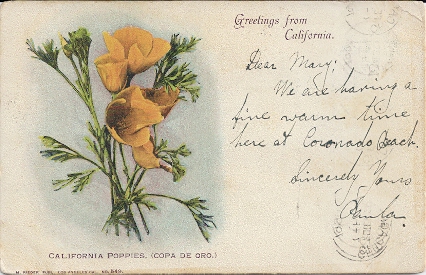 Greetings from
California.
Dear Mary;
We are having a
fine warm time
here at Coronado Beach.
Sincerely Yours
Paula.
CALIFORNIA POPPIES. (COPA DE ORO.)
M. RIEDER, PUBL. LOS ANGELES, CAL. No.